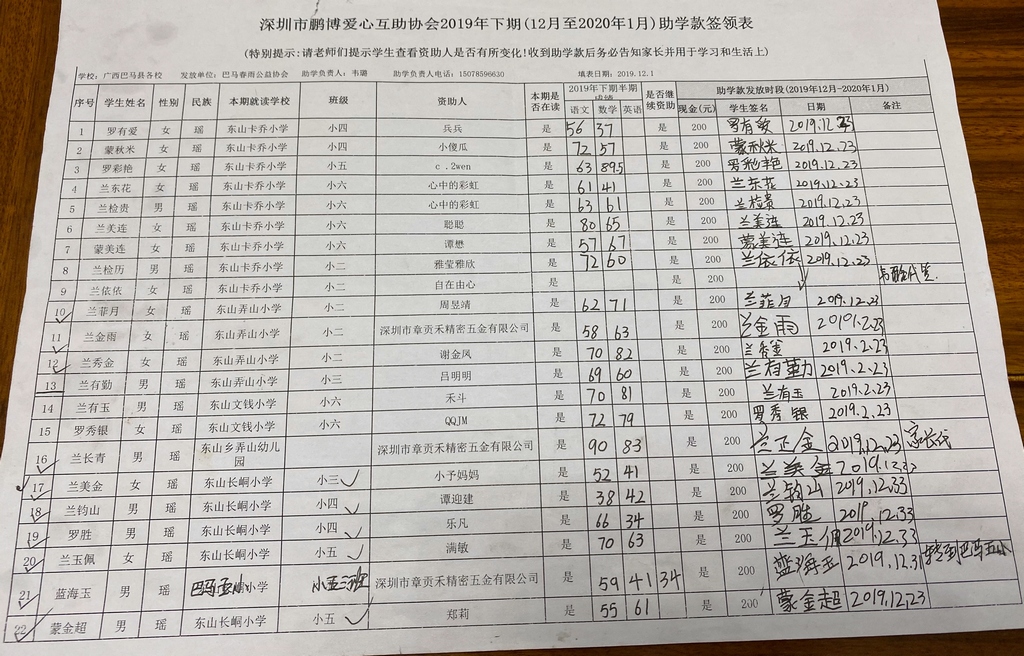 深圳市鹏博爱心互助协会2019年下期(12月至2020年1月)助学款签领表
(特别提示:请老师们提示学生查看资助人是否有所变化!收到助学款后务必告知家长并用于学习和生活上)
学校: 广西巴马县各校 发放单位: 巴马春雨公益协会 助学负责人: 韦璐 助学负责人电话: 15078596630 填表日期: 2019.12.1
序号 学生姓名 性别 民族 本期就读学校 班级 资助人 本期是否在读 2019年下期半期成绩 语文 数学 英语 是否继续资助 助学款发放时段(2019年12月-2020年1月) 现金(元) 学生签名 日期 备注
1 罗有爱 女 瑶 东山卡乔小学 小四 兵兵 是 56 37 是 200 罗有爱 2019.12.23
2 蒙秋米 女 瑶 东山卡乔小学 小四 小傻瓜 是 72 57 是 200 蒙秋米 2019.12.23
3 罗彩艳 女 瑶 东山卡乔小学 小五 c.2wen 是 63 89.5 是 200 罗彩艳 2019.12.23
4 兰东花 女 瑶 东山卡乔小学 小六 心中的彩虹 是 61 41 是 200 兰东花 2019.12.23
5 兰检贵 男 瑶 东山卡乔小学 小六 心中的彩虹 是 63 61 是 200 兰检贵 2019.12.23
6 兰美连 女 瑶 东山卡乔小学 小六 聪聪 是 80 65 是 200 兰美连 2019.12.23
7 蒙美连 女 瑶 东山卡乔小学 小六 谭懋 是 57 67 是 200 蒙美连 2019.12.23
8 兰检历 男 瑶 东山卡乔小学 小二 雅莹雅欣 是 72 60 是 200 兰依依 2019.12.23
9 兰依依 女 瑶 东山卡乔小学 小二 自在由心 是 是 200
10 兰菲月 女 瑶 东山弄山小学 小二 周昱靖 是 62 71 是 200 兰菲月 2019.12.23
11 兰金雨 女 瑶 东山弄山小学 小二 深圳市章贡禾精密五金有限公司 是 58 63 是 200 兰金雨 2019.2.23
12 兰秀金 女 瑶 东山弄山小学 小二 谢金凤 是 70 82 是 200 兰秀金 2019.2.23
13 兰有勤 男 瑶 东山弄山小学 小三 吕明明 是 69 60 是 200 兰有勤 2019.2.23
14 兰有玉 男 瑶 东山文钱小学 小六 禾斗 是 70 81 是 200 兰有玉 2019.2.23
15 罗秀银 女 瑶 东山文钱小学 小六 QQJM 是 72 79 是 200 罗秀银 2019.2.23
16 兰长青 男 瑶 东山乡弄山幼儿园 深圳市章贡禾精密五金有限公司 是 90 83 是 200 兰正金 2019.12.23 家长代
17 兰美金 女 瑶 东山长峒小学 小三 小予妈妈 是 52 41 是 200 兰美金 2019.12.23
18 兰钧山 男 瑶 东山长峒小学 小四 谭迎建 是 38 42 是 200 兰钧山 2019.12.33
19 罗胜 男 瑶 东山长峒小学 小四 乐凡 是 66 34 是 200 罗胜 2019.12.33
20 兰玉佩 女 瑶 东山长峒小学 小五 满敏 是 70 63 是 200 兰玉佩 2019.12.33
21 蓝海玉 男 瑶 小学 小五 深圳市章贡禾精密五金有限公司 是 59 41 34 是 200 蓝海玉 2019.12.31 转到巴马五小
22 蒙金超 男 瑶 东山长峒小学 小五 郑莉 是 55 61 是 200 蒙金超 2019.12.23